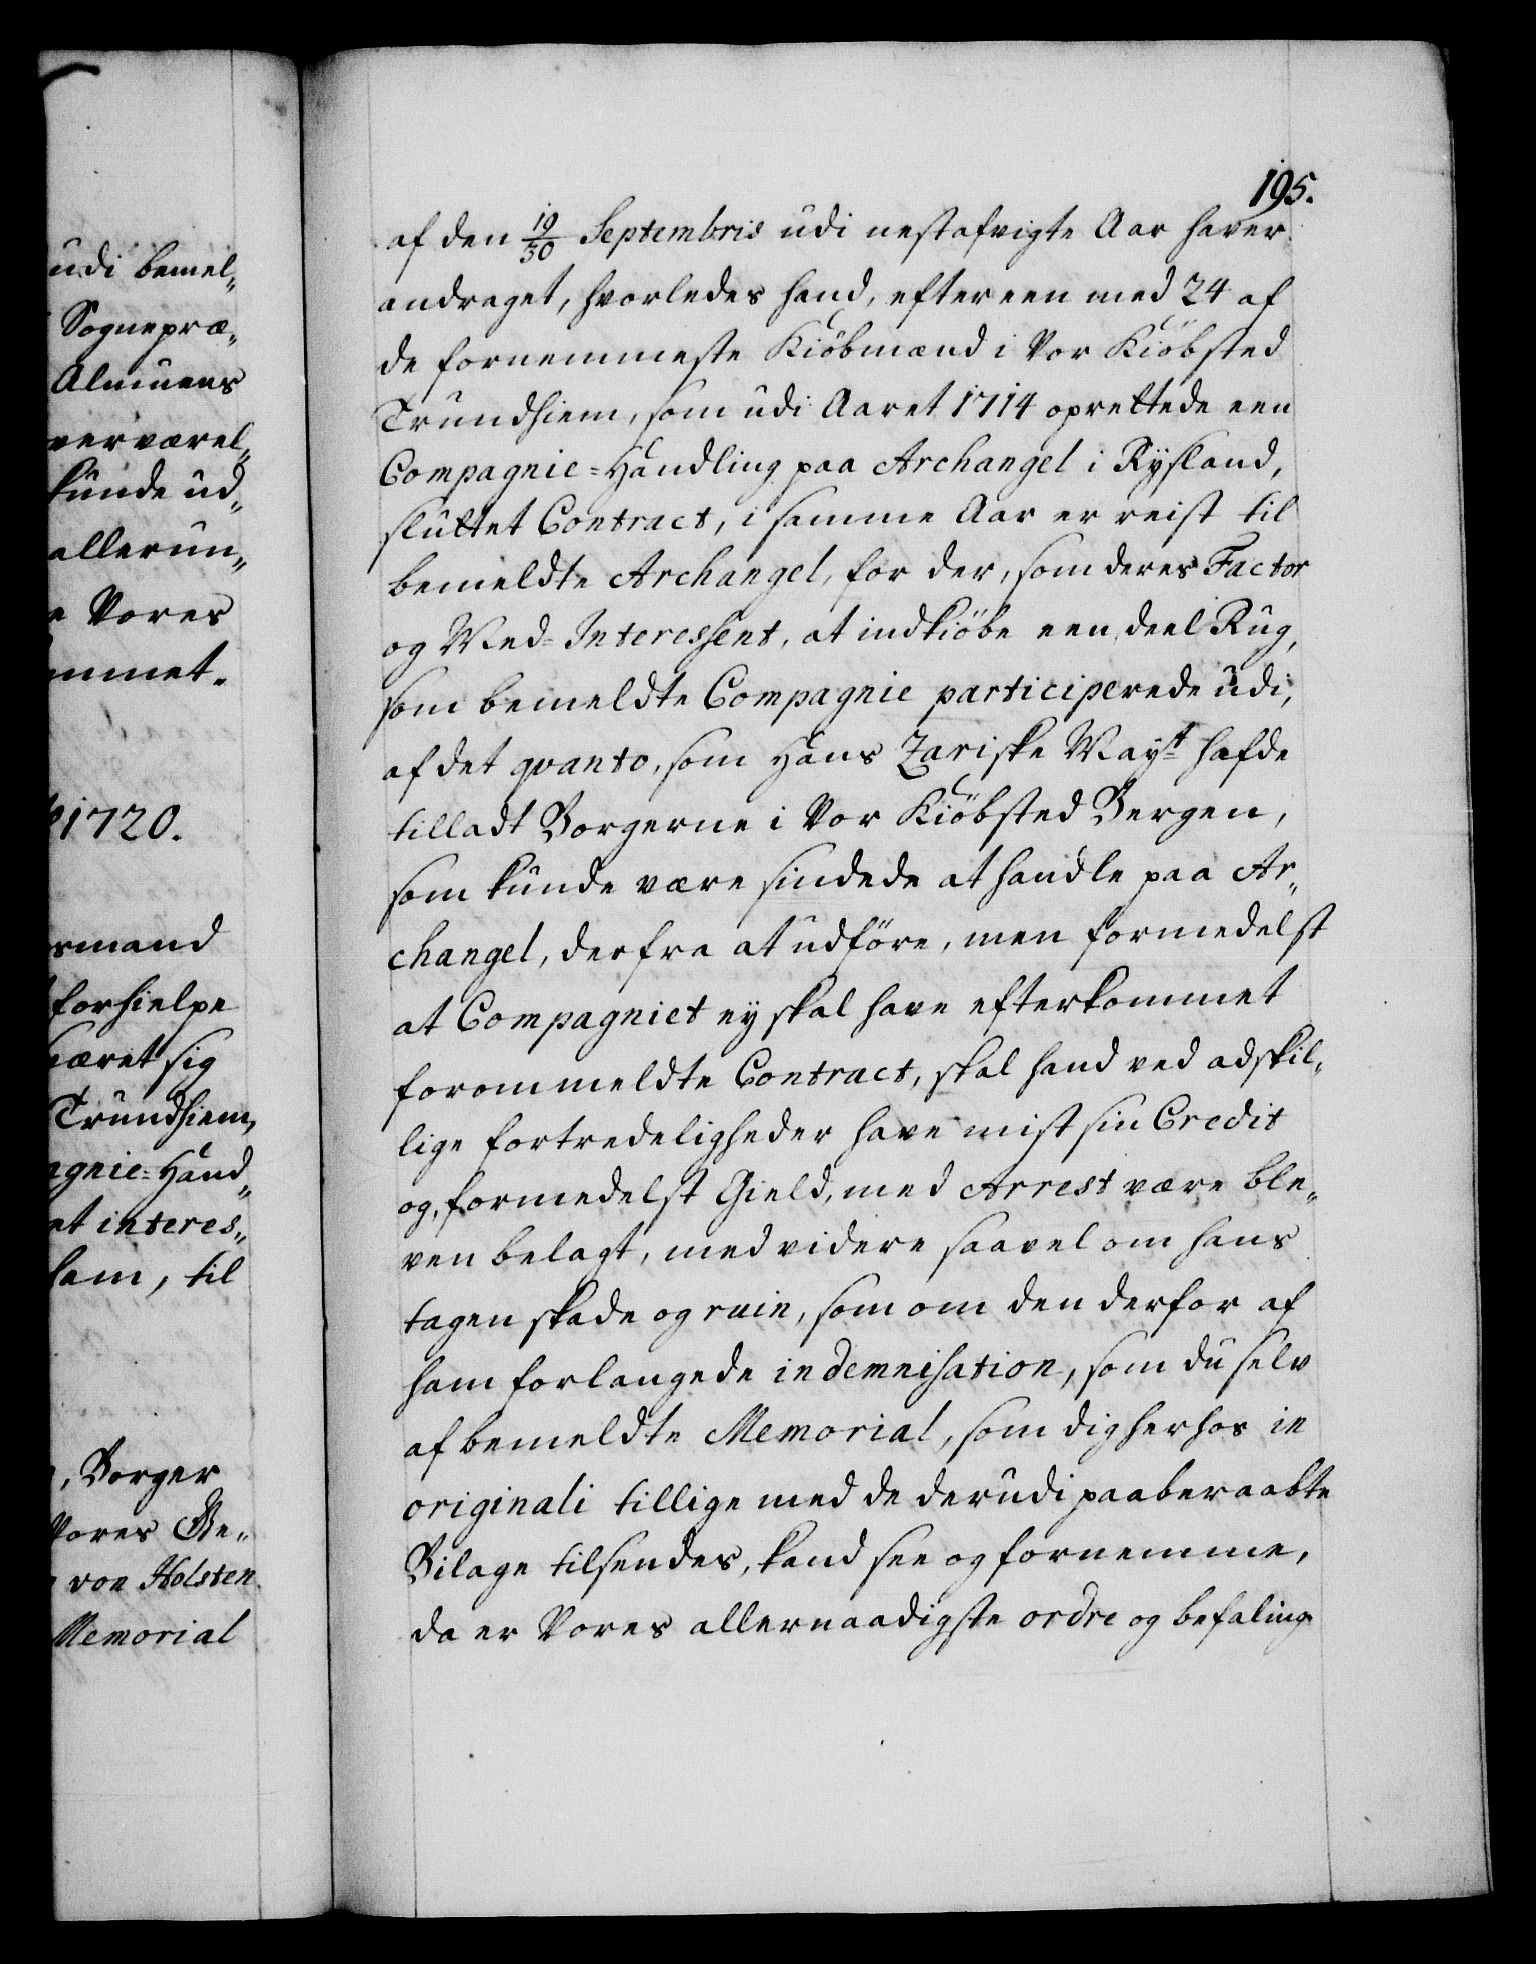 udi bemel„
Sognepræ„
Almuens
verværel„
kunde ud„
allerun„
Vores
mmet.
1720.
rmand
forhielpe
været sig
Trundhiem,
agnie-Hand„
et interes„
ham, til
, Borger
Vores Ge„
von Holsten
Memorial
195.
af den 19/30 Septembris udi nestafvigte Aar haver
andraget, hvorledes hand, efter een med 24 af
de fornemmeste Kiöbmænd i Vor Kiöbsted
Trundhiem, som udi Aaret 1714 oprettede een
Compagnie-Handling paa Archangel i Rysland,
sluttet Contract, i samme Aar er reist til
bemeldte Archangel, for der, som deres Factor
og Med-Interessent, at indkiöbe een deel Rug,
som bemeldte Compagnie participerede udi,
af det qvanto, som Hans Zariske Mayt hafde
tilladt Borgerne i Vor Kiöbsted Bergen,
som kunde være sindede at handle paa Ar„
changel, derfra at udföre, men formedelst
at Compagniet ey skal have efterkommet
forommeldte Contract, skal hand ved adskil„
lige fortredeligheder have mist sin Credit
og, formedelst Gield, med Arrest være ble„
ven belagt, med videre saavel om hans
tagen skade og ruin, som om den derfor af
ham forlangede indemnisation, som du selv
af bemeldte Memorial, som dig herhos in
originali tillige med de derudi paaberaabte
Bilage tilsendes, kand see og fornemme,
da er Vores allernaadigste ordre og befaling